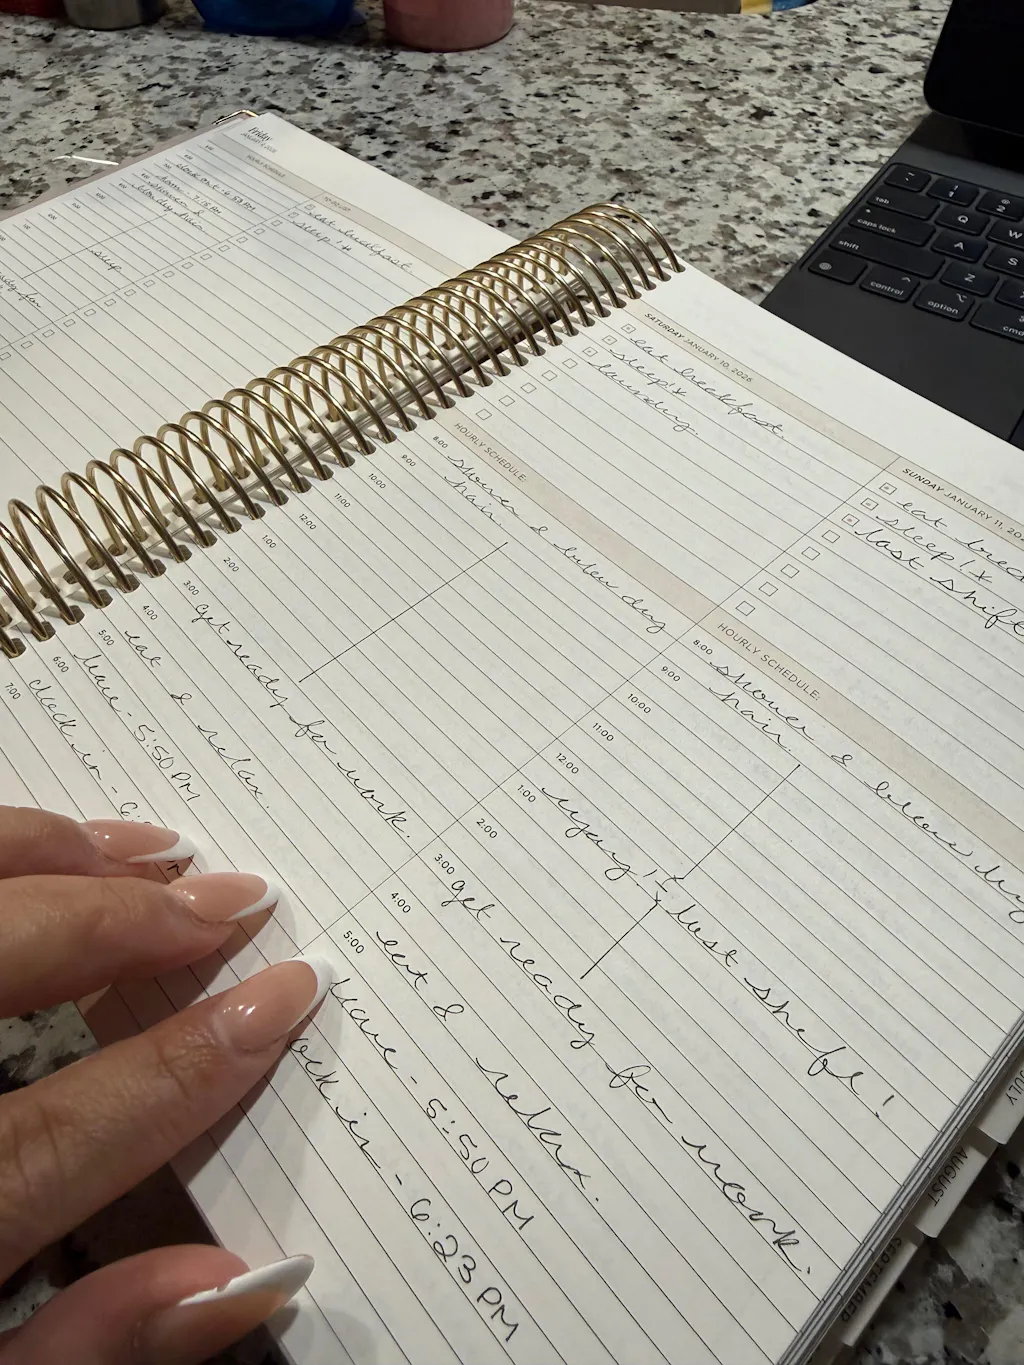 Friday
HOURLY SCHEDULE
TO-DO LIST
eat breakfast
sleep!*
sleep
SATURDAY JANUARY 10, 2026
eat breakfast.
sleep!*
laundry.
HOURLY SCHEDULE:
8:00 shower & blow dry
9:00 hair.
10:00
11:00
12:00
1:00
2:00
3:00 get ready for work.
4:00 eat & relax.
5:00 leave - 5:50 PM
6:00 clock in - 6:
7:00
SUNDAY JANUARY 11, 20
eat brea
sleep!*
last shift
HOURLY SCHEDULE:
8:00 shower & blow dry
9:00 hair.
10:00
11:00
12:00
1:00
2:00
last shift!
3:00 get ready for work.
4:00 eat & relax.
5:00 leave - 5:50 PM
ock in - 6:23 PM
JULY
AUGUST
SEPTEMBER
tab
caps lock
shift
control
option
cmd
Q
W
A
S
Z
X